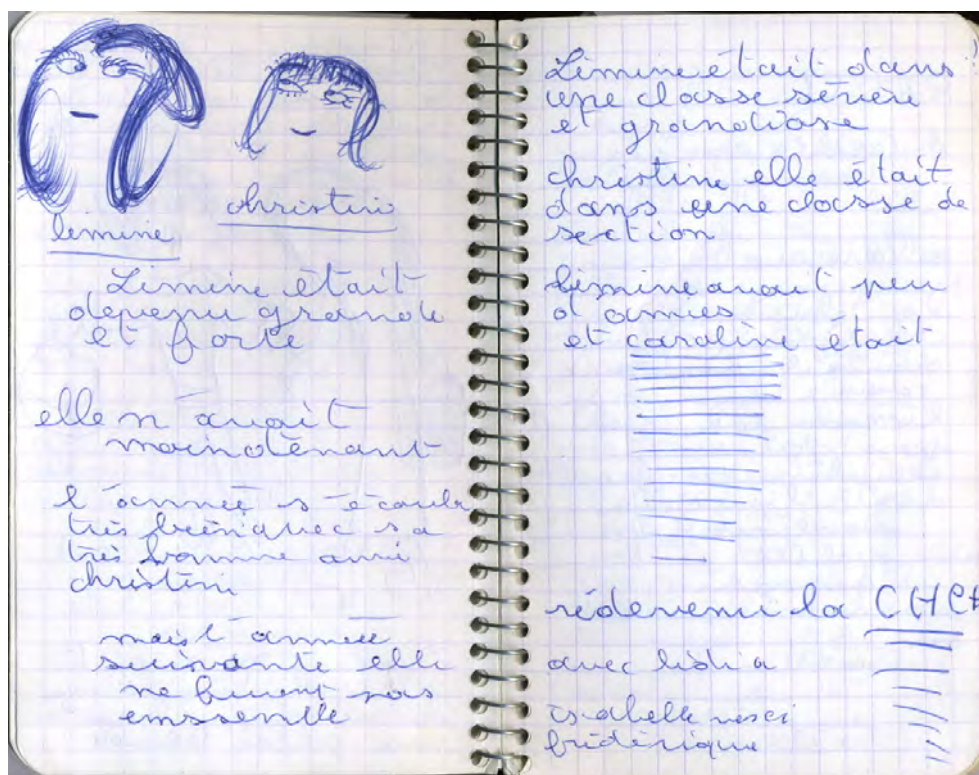 limine
christin
Limine était
depenu grande
et forte
elle n'avait
maintenant
l'année s'écoula
très bien avec sa
très bonne amie
christin
mais l'année
suivante elle
ne furent pas
emssemble
Limine était dans
une classe sévère
et grandiose
christine elle était
dans une classe de
section
limine avait peu
d'amies
et caroline était
rédevenu la CHEF
avec lidia
isabelle
frédérique